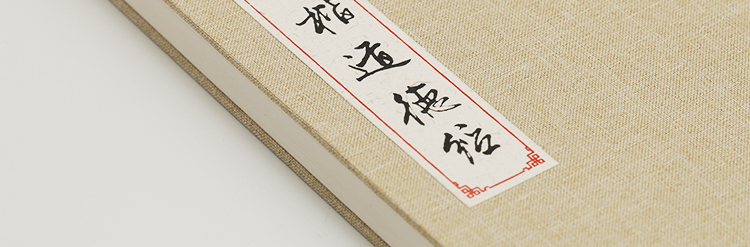 楷道德经